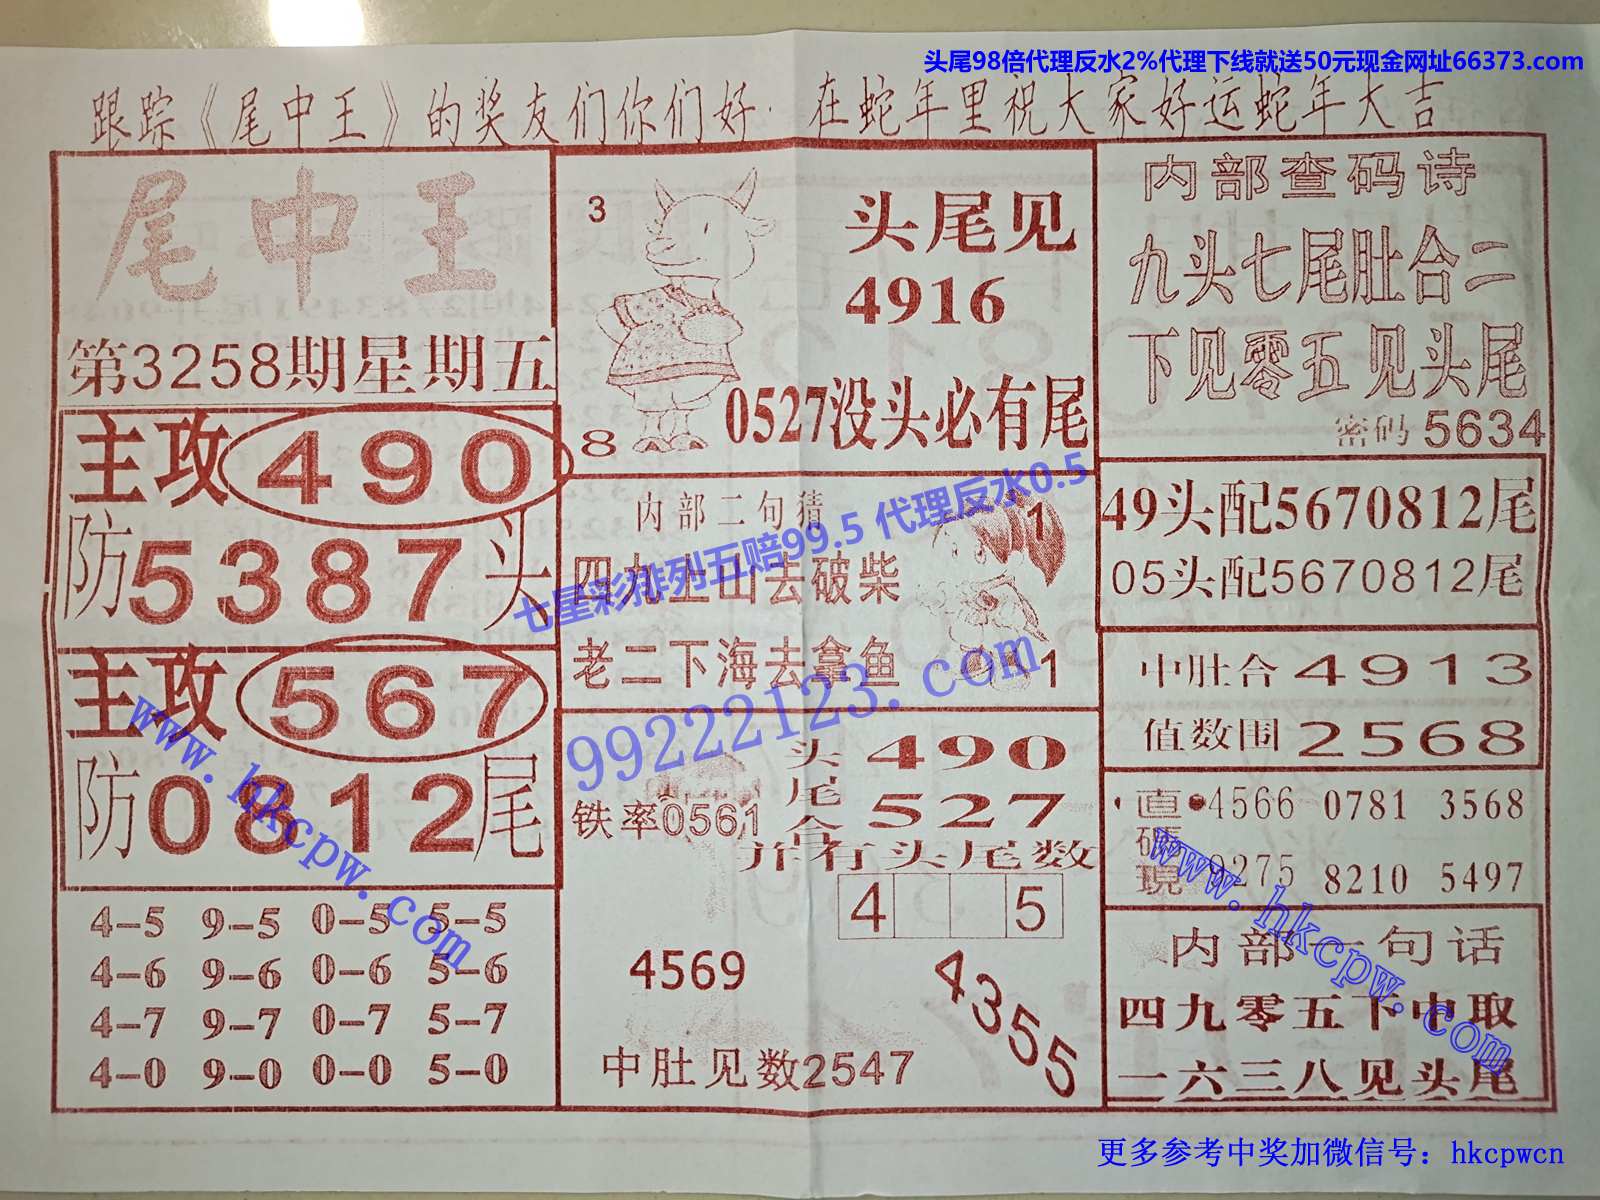 头尾98倍代理反水2%代理下线就送50元现金网址66373.com
跟踪《尾中王》的奖友们你们好·在蛇年里祝大家好运蛇年大吉
尾中王
第3258期星期五
主攻490
防5387头
主攻567
防0812尾
4-5 9-5 0-5 5-5
4-6 9-6 0-6 5-6
4-7 9-7 0-7 5-7
4-0 9-0 0-0 5-0
3
头尾见
4916
0527没头必有尾
8
内部二句猜
1
四九上山去破柴
老二下海去拿鱼
1
七星彩排列五赔99.5 代理反水0.5
99222123.com
头尾合
490
527
铁率0561
并有头尾数
4 5
4569
4355
中肚见数2547
内部查码诗
九头七尾肚合二
下见零五见头尾
密码5634
49头配5670812尾
05头配5670812尾
中肚合4913
值数围2568
直码现
4566 0781 3568
9275 8210 5497
内部一句话
四九零五下中取
一六三八见头尾
www.hkcpw.com
www.hkcpw.com
更多参考中奖加微信号：hkcpwcn